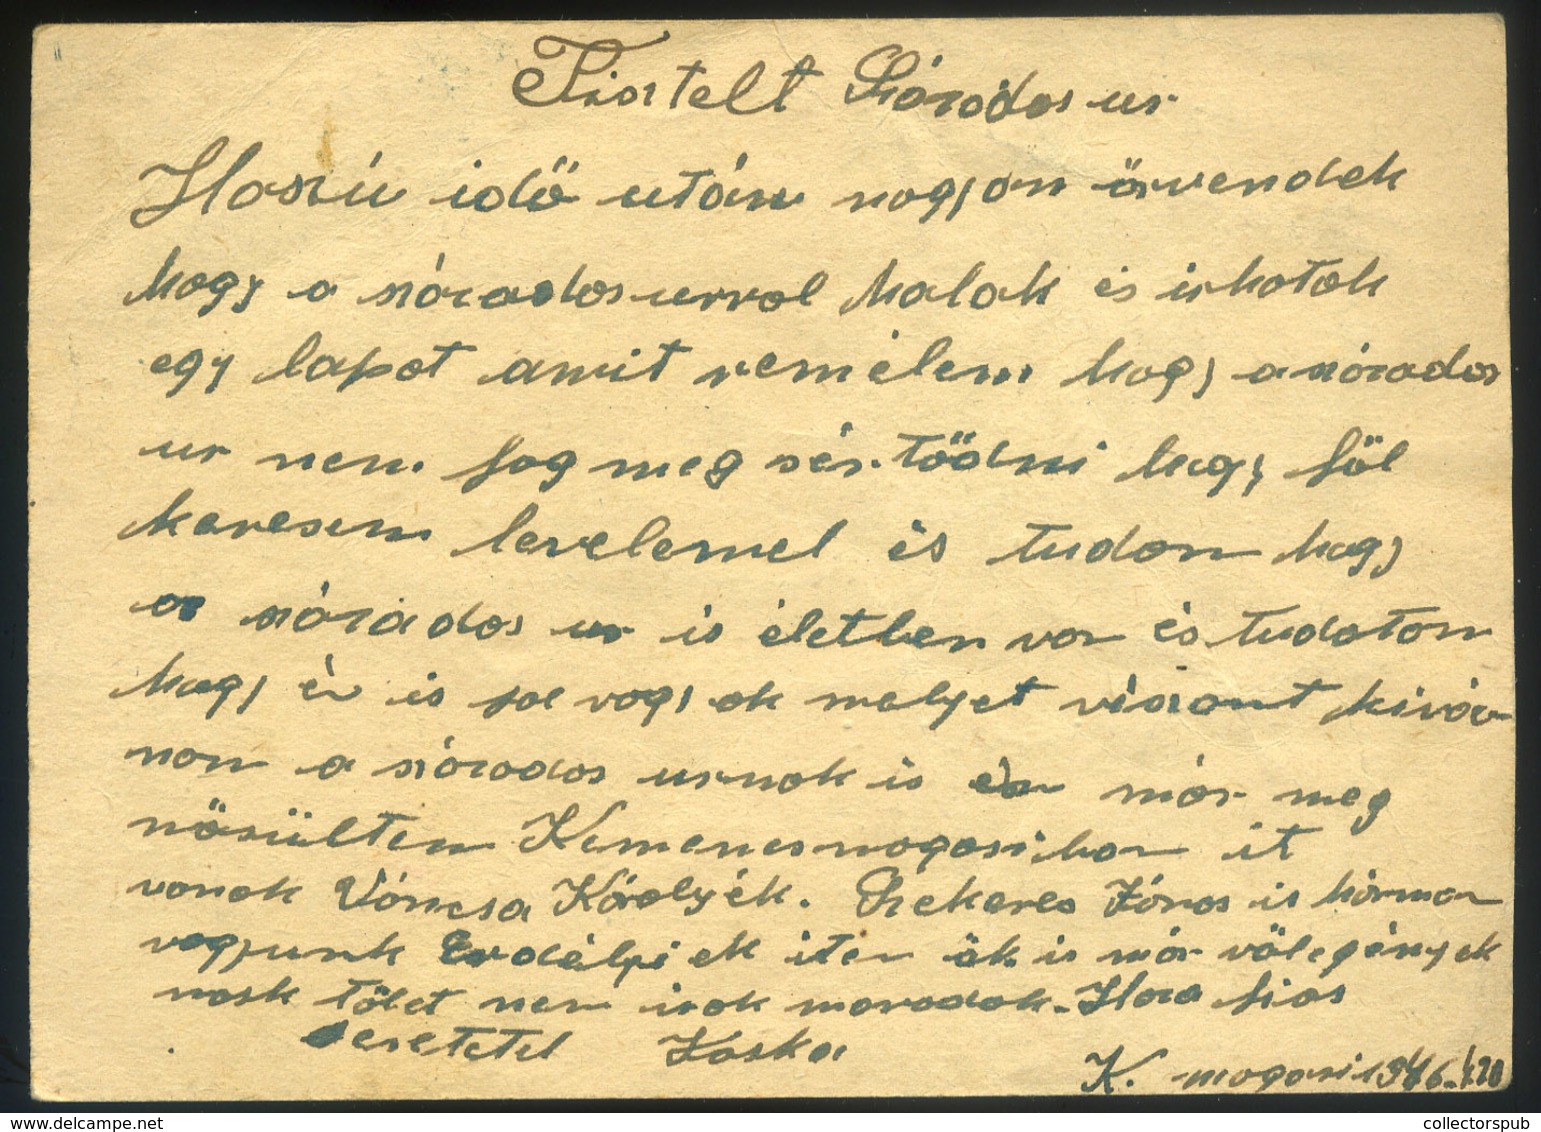 Tisztelt Százados ur
Hoszú időután nagyon örvendek
hogy a százados urral halak és irhatok
egy lapot amit remélem hogy a százados
ur nem fog meg sértödni hogy föl
keresem levelemel és tudom hogy
a százados ur is életben van és tudatom
hogy én is jol vagyok melyet viszont kiván
nom a százados urnak is én már meg
nösültem Kemenesmagasiban it
vanak Váncsa Károlyék. Szekeres János is hárman
vagyunk Erdélyiek iten ök is már völegények
több nem irok maradok. Haza fias
szeretetel Jóska
K. magasi 1946.
collectorspub collectorspub.com